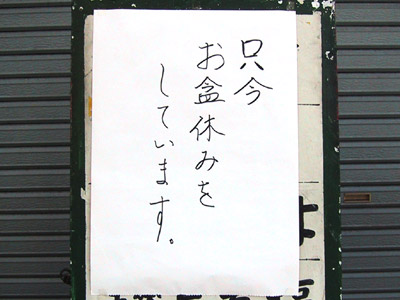 只今
お盆休みを
しています。